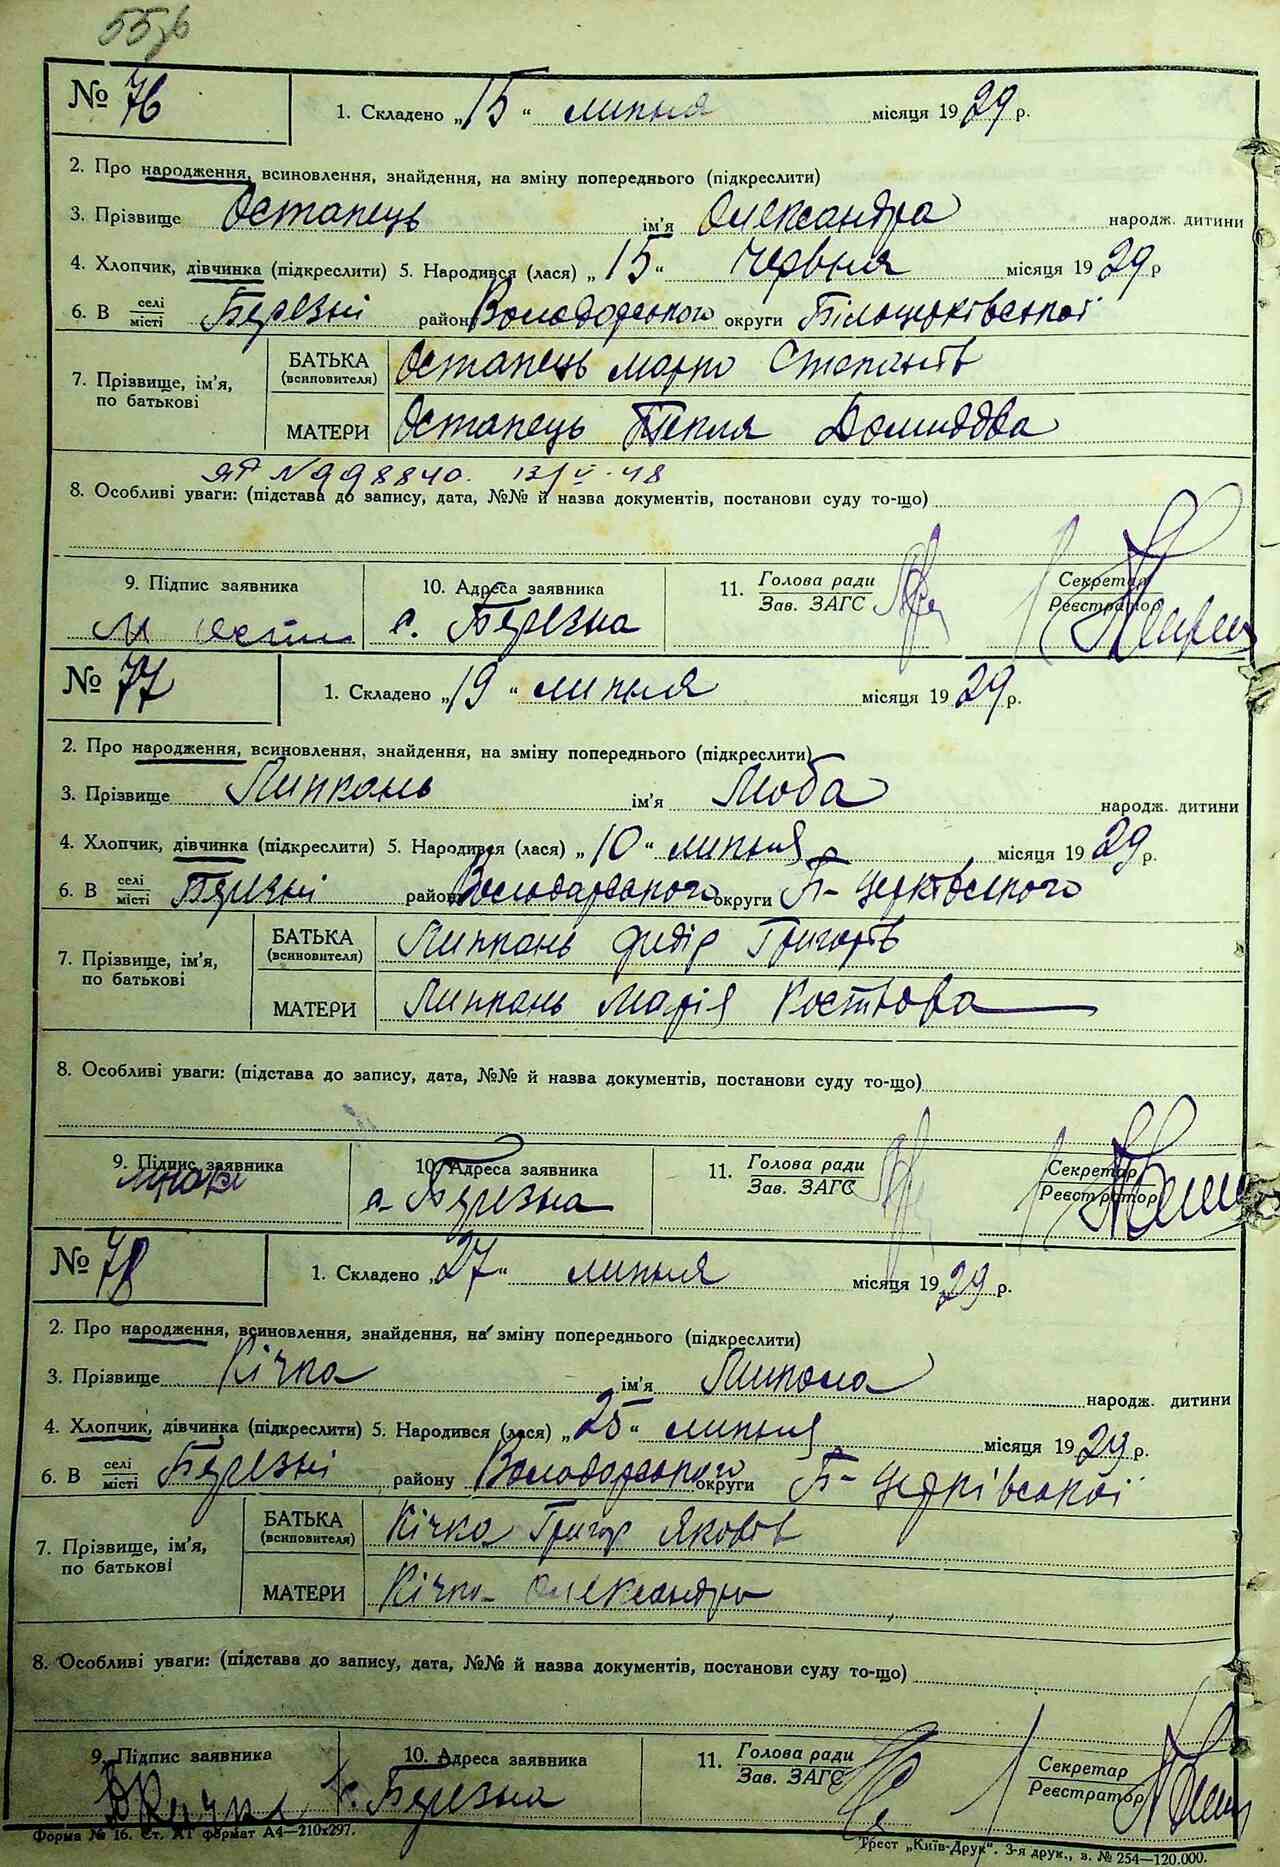 № 76
1. Складено „15“ липня місяця 1929 р.
2. Про народження, всиновлення, знайдення, на зміну попереднього (підкреслити)
3. Прізвище Остапець ім'я Олександра народж. дитини
4. Хлопчик, дівчинка (підкреслити) 5. Народився (лася) „15“ Червня місяця 1929 р
6. В селі місті Березні району Володарського округи Білоцерківської
7. Прізвище, ім'я, по батькові
БАТЬКА (всиновителя) Остапець Марко Степанів
МАТЕРИ Остапець Текля Домидова
ЯР N 998840. 13/V-48
8. Особливі уваги: (підстава до запису, дата, №№ й назва документів, постанови суду то-що)
9. Підпис заявника 10. Адреса заявника 11. Голова ради Зав. ЗАГС Секретар Реєстратор
с. Березна
№ 77
1. Складено „19“ липня місяця 1929 р.
2. Про народження, всиновлення, знайдення, на зміну попереднього (підкреслити)
3. Прізвище Липкань ім'я Люба народж. дитини
4. Хлопчик, дівчинка (підкреслити) 5. Народився (лася) „10“ липня місяця 1929 р.
6. В селі місті Березні району Володарського округи Б-Церківського
7. Прізвище, ім'я, по батькові
БАТЬКА (всиновителя) Липкань Федір Григорів
МАТЕРИ Липкань Марія Костьова
8. Особливі уваги: (підстава до запису, дата, №№ й назва документів, постанови суду то-що)
9. Підпис заявника 10. Адреса заявника 11. Голова ради Зав. ЗАГС Секретар Реєстратор
с. Березна
№ 78
1. Складено „27“ липня місяця 1929 р.
2. Про народження, всиновлення, знайдення, на зміну попереднього (підкреслити)
3. Прізвище Кічка ім'я Микола народж. дитини
4. Хлопчик, дівчинка (підкреслити) 5. Народився (лася) „25“ липня місяця 1929 р.
6. В селі місті Березні району Володарського округи Б-Церківської
7. Прізвище, ім'я, по батькові
БАТЬКА (всиновителя) Кічка Григор Яковів
МАТЕРИ Кічка Олександра
8. Особливі уваги: (підстава до запису, дата, №№ й назва документів, постанови суду то-що)
9. Підпис заявника 10. Адреса заявника 11. Голова ради Зав. ЗАГС Секретар Реєстратор
с. Березна
Форма № 16. Ст. А1 формат А4—210x297.
Трест „Київ-Друк“. 3-я друк., з. № 254—120.000.